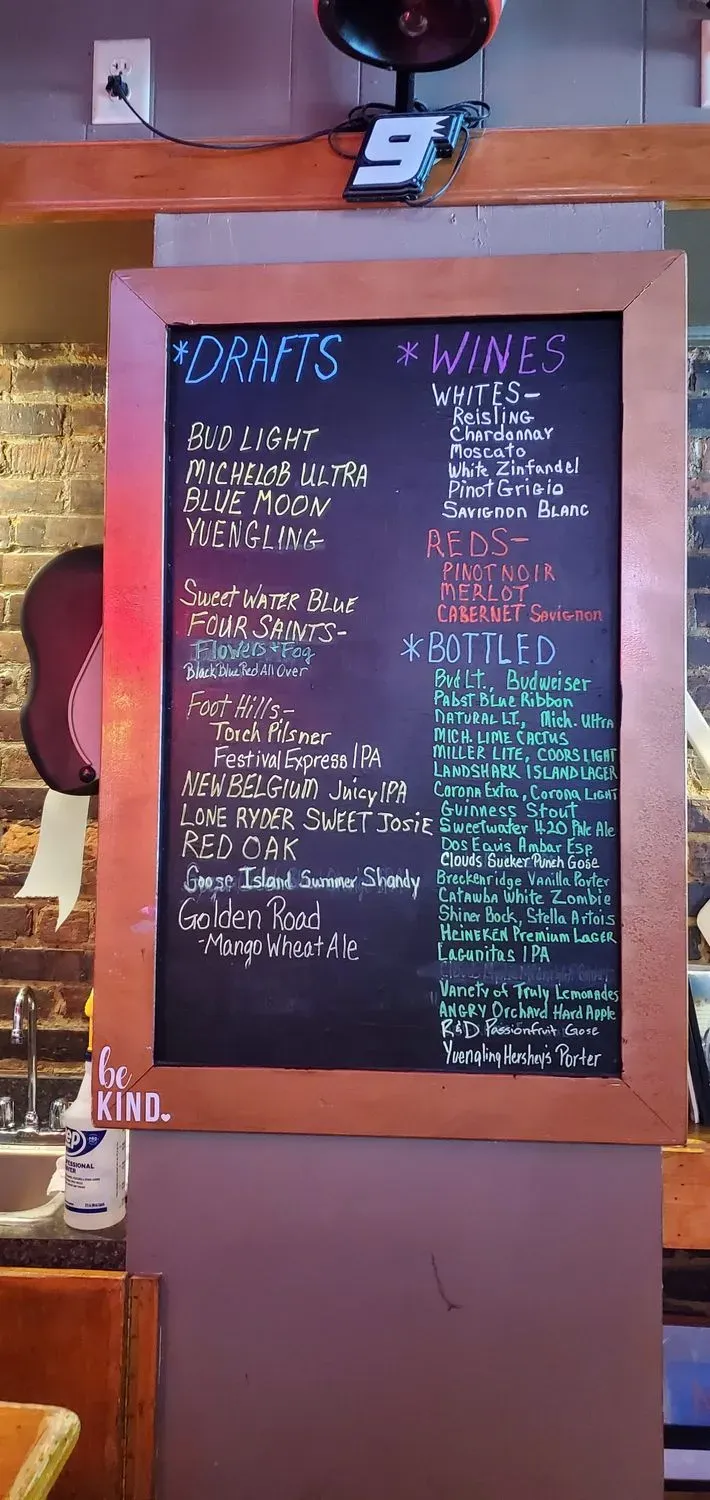 9
*DRAFTS
BUD LIGHT
MICHELOB ULTRA
BLUE MOON
YUENGLING
Sweet WATER BLUE
FOUR SAINTS-
Flowers + Fog
Black Blue Red All Over
Foot Hills-
Torch Pilsner
Festival Express IPA
NEW BELGIUM Juicy IPA
LONE RYDER SWEET JOSIE
RED OAK
Goose Island Summer Shandy
Golden Road
-Mango Wheat Ale
*WINES
WHITES-
Reisling
Chardonnay
Moscato
White Zinfandel
Pinot Grigio
Savignon Blanc
REDS-
PINOT NOIR
MERLOT
CABERNET Savignon
*BOTTLED
Bud Lt., Budweiser
Pabst Blue Ribbon
NATURAL LT., Mich. Ultra
MICH. LIME CACTUS
MILLER LITE, COORS LIGHT
LANDSHARK ISLAND LAGER
Corona Extra, Corona LIGHT
Guinness Stout
Sweetwater 420 Pale Ale
Dos Equis Ambar Esp
Clouds Sucker Punch Gose
Breckenridge Vanilla Porter
Catawba White Zombie
Shiner Bock, Stella Artois
HEINEKEN Premium Lager
Lagunitas IPA
Variety of Truly Lemonades
ANGRY Orchard Hard Apple
R&D Passionfruit Gose
Yuengling Hershey's Porter
be
KIND.